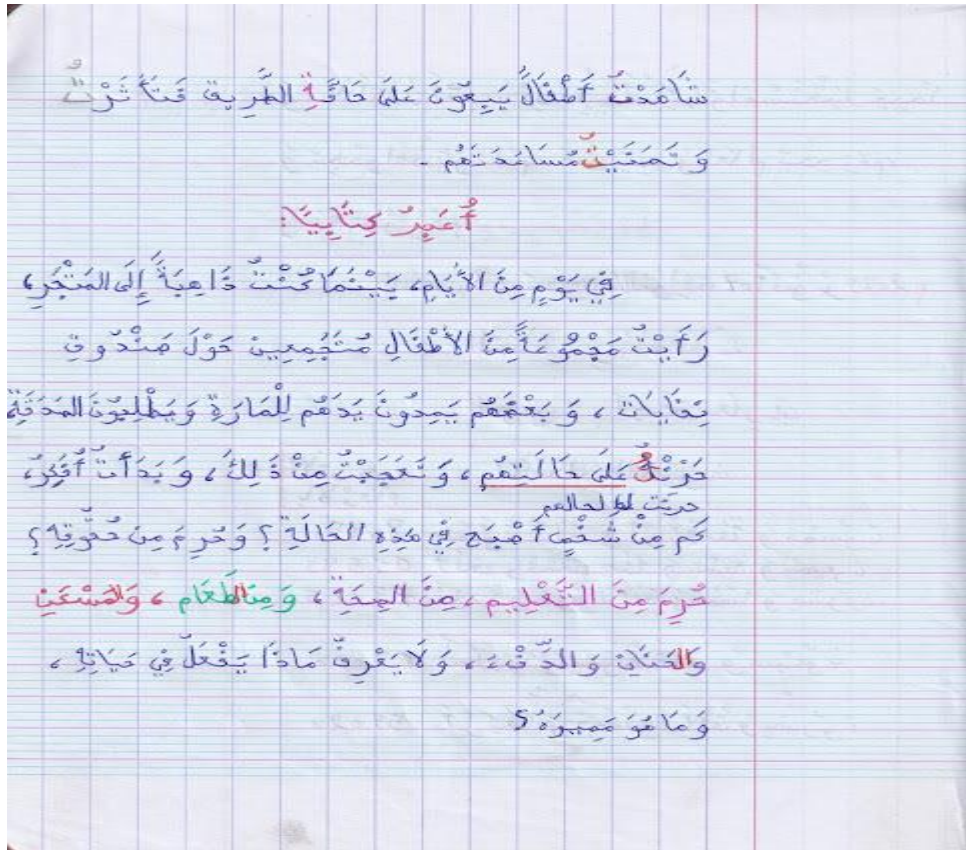 شَاهَدْتُ أَطْفَالً يَبِيعُونَ عَلَى حَافَةِ الطَّرِيقِ فَتَأَثَّرْتُ
وَ تَمَنَيْتُ مُسَاعَدَتَهُم .
أُعَبِرُ كِتَابِيًا:
فِي يَوْمٍ مِنَ الأَيَامِ، بَيْنَمَا كُنْتُ ذَاهِبَةً إِلَى المَتْجَرِ،
رَأَيْتُ مَجْمُوعَةً مِنَ الأَطْفَالِ مُتَجَمِعِين حَوْلَ صَنْدُوقِ
نِفَايَات ، وَ بَعْضُهُم يَمِدُونَ يَدَهُم لِلْمَارَةِ وَ يَطْلِبُونَ الصَدَقَة
حَزَنْتُ عَلَى حَالَتِهِم ، وَ تَعَجَبْتُ مِنْ ذَلِكَ ، وَ بَدَأَتُ أُفَكِرُ،
حزنت لحالهم
كَم مِنْ شَخْصٍ أَصْبَحَ فِي هَذِهِ الحَالَةِ ؟ وَ حُرِمَ مِنَ حُقُوقِهِ ؟
حُرِمَ مِنَ التَّعْلِيمِ ، مِنَ الصِحَةِ ، وَ مِنَ الطَعَامِ ، وَالمَسْكَنِ
وَالحَنَانِ وَ الدِّفْءَ ، وَ لَا يَعْرِفُ مَاذَا يَفْعَلُ فِي حَيَاتِهِ ،
وَ مَا هُوَ مَصِيرَهُ ؟